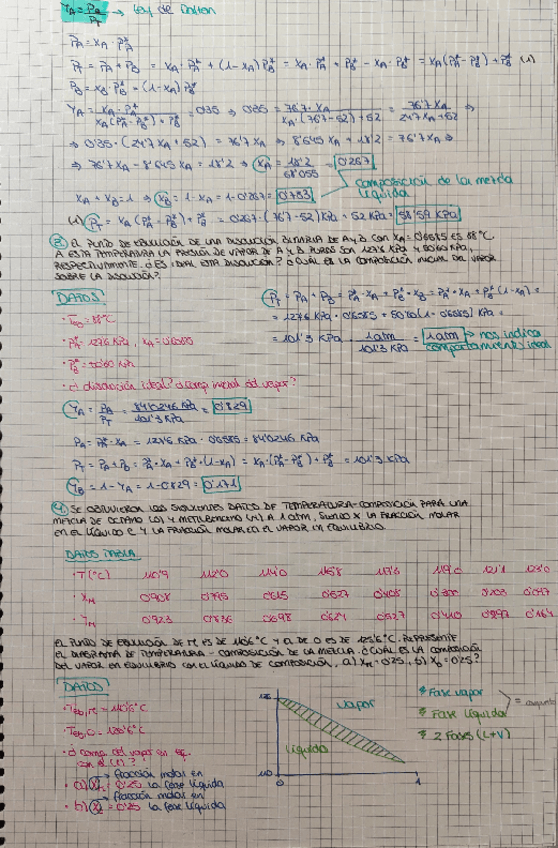 YA = PA/PT → Ley de Dalton
PA = XA · PA*
PT = PA + PB = XA · PA* + (1-XA) PB* = XA · PA* + PB* - XA · PB* = XA (PA* - PB*) + PB* (1)
PB = XB · PB* = (1-XA) PB*
YA = XA · PA* / XA (PA* - PB*) + PB* = 0'35 ⇒ 0'35 = 76'7 · XA / XA · (76'7 - 52) + 52 = 76'7 XA / 24'7 XA + 52 ⇒
⇒ 0'35 · (24'7 XA + 52) = 76'7 XA ⇒ 8'645 XA + 18'2 = 76'7 XA ⇒
⇒ 76'7 XA - 8'645 XA = 18'2 ⇒ XA = 18'2 / 68'055 = 0'267
XA + XB = 1 ⇒ XB = 1 - XA = 1 - 0'267 = 0'733
composición de la mezcla líquida
(1) PT = XA (PA* - PB*) + PB* = 0'267 · (76'7 - 52) kPa + 52 kPa = 58'59 kPa
2. EL PUNTO DE EBULLICIÓN DE UNA DISOLUCIÓN BINARIA DE A y B CON XA = 0'6585 ES 88°C.
A ESTA TEMPERATURA LA PRESIÓN DE VAPOR DE A y B PUROS SON 127'6 KPA y 50'60 KPA,
RESPECTIVAMENTE. ¿ES IDEAL ESTA DISOLUCIÓN? ¿CUÁL ES LA COMPOSICIÓN INICIAL DEL VAPOR
SOBRE LA DISOLUCIÓN?
DATOS
· Teb = 88°C
· PA* = 127'6 KPa, XA = 0'6585
· PB* = 50'60 KPa
· ¿ disolución ideal? ¿comp inicial del vapor?
PT = PA + PB = PA* · XA + PB* · XB = PA* · XA + PB* (1-XA) =
= 127'6 KPa · 0'6585 + 50'60 (1-0'6585) KPa =
= 101'3 KPa · 1atm / 101'3 KPa = 1 atm → nos indica
comportamiento ideal
YA = PA / PT = 84'0246 KPa / 101'3 KPa = 0'829
PA = PA* · XA = 127'6 KPa · 0'6585 = 84'0246 KPa
PT = PA + PB = PA* · XA + PB* · (1-XA) = XA · (PA* - PB*) + PB* = 101'3 KPa
YB = 1 - YA = 1 - 0'829 = 0'171
4. SE OBTUVIERON LOS SIGUIENTES DATOS DE TEMPERATURA-COMPOSICIÓN PARA UNA
MEZCLA DE OCTANO (O) Y METILBENCENO (M) A 1 atm, SIENDO X LA FRACCIÓN MOLAR
EN EL LÍQUIDO E Y LA FRACCIÓN MOLAR EN EL VAPOR EN EQUILIBRIO
DATOS TABLA
· T(°C) 110'9 112'0 114'0 115'8 117'3 119'0 121'1 123'0
· XM 0'908 0'795 0'615 0'527 0'408 0'300 0'203 0'097
· YM 0'923 0'836 0'698 0'624 0'527 0'410 0'297 0'164
EL PUNTO DE EBULLICIÓN DE M ES DE 110'6°C Y EL DE O ES DE 125'6°C. REPRESENTE
EL DIAGRAMA DE TEMPERATURA - COMPOSICIÓN DE LA MEZCLA. ¿CUÁL ES LA COMPOSICIÓN
DEL VAPOR EN EQUILIBRIO CON EL LÍQUIDO DE COMPOSICIÓN, a) XM = 0'25, b) XO = 0'25?
DATOS
· Teb, M = 110'6°C
· Teb, O = 125'6°C
· ¿ comp del vapor en eq.
con el (l) ?
fracción molar en
· a) XM = 0'25 la fase líquida
fracción molar en
· b) XO = 0'25 la fase líquida
vapor
líquido
110
0
1
* Fase vapor
* Fase líquida
* 2 Fases (L+V)